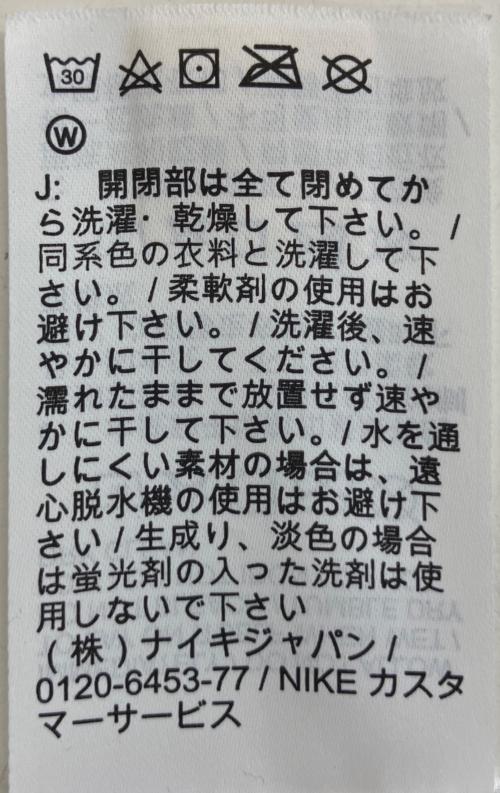 30
W
J: 開閉部は全て閉めてか
ら洗濯・乾燥して下さい。 /
同系色の衣料と洗濯して下
さい。 / 柔軟剤の使用はお
避け下さい。 / 洗濯後、速
やかに干してください。 /
濡れたままで放置せず速や
かに干して下さい。/ 水を通
しにくい素材の場合は、遠
心脱水機の使用はお避け下
さい / 生成り、淡色の場合
は蛍光剤の入った洗剤は使
用しないで下さい
(株)ナイキジャパン /
0120-6453-77 / NIKE カスタ
マーサービス